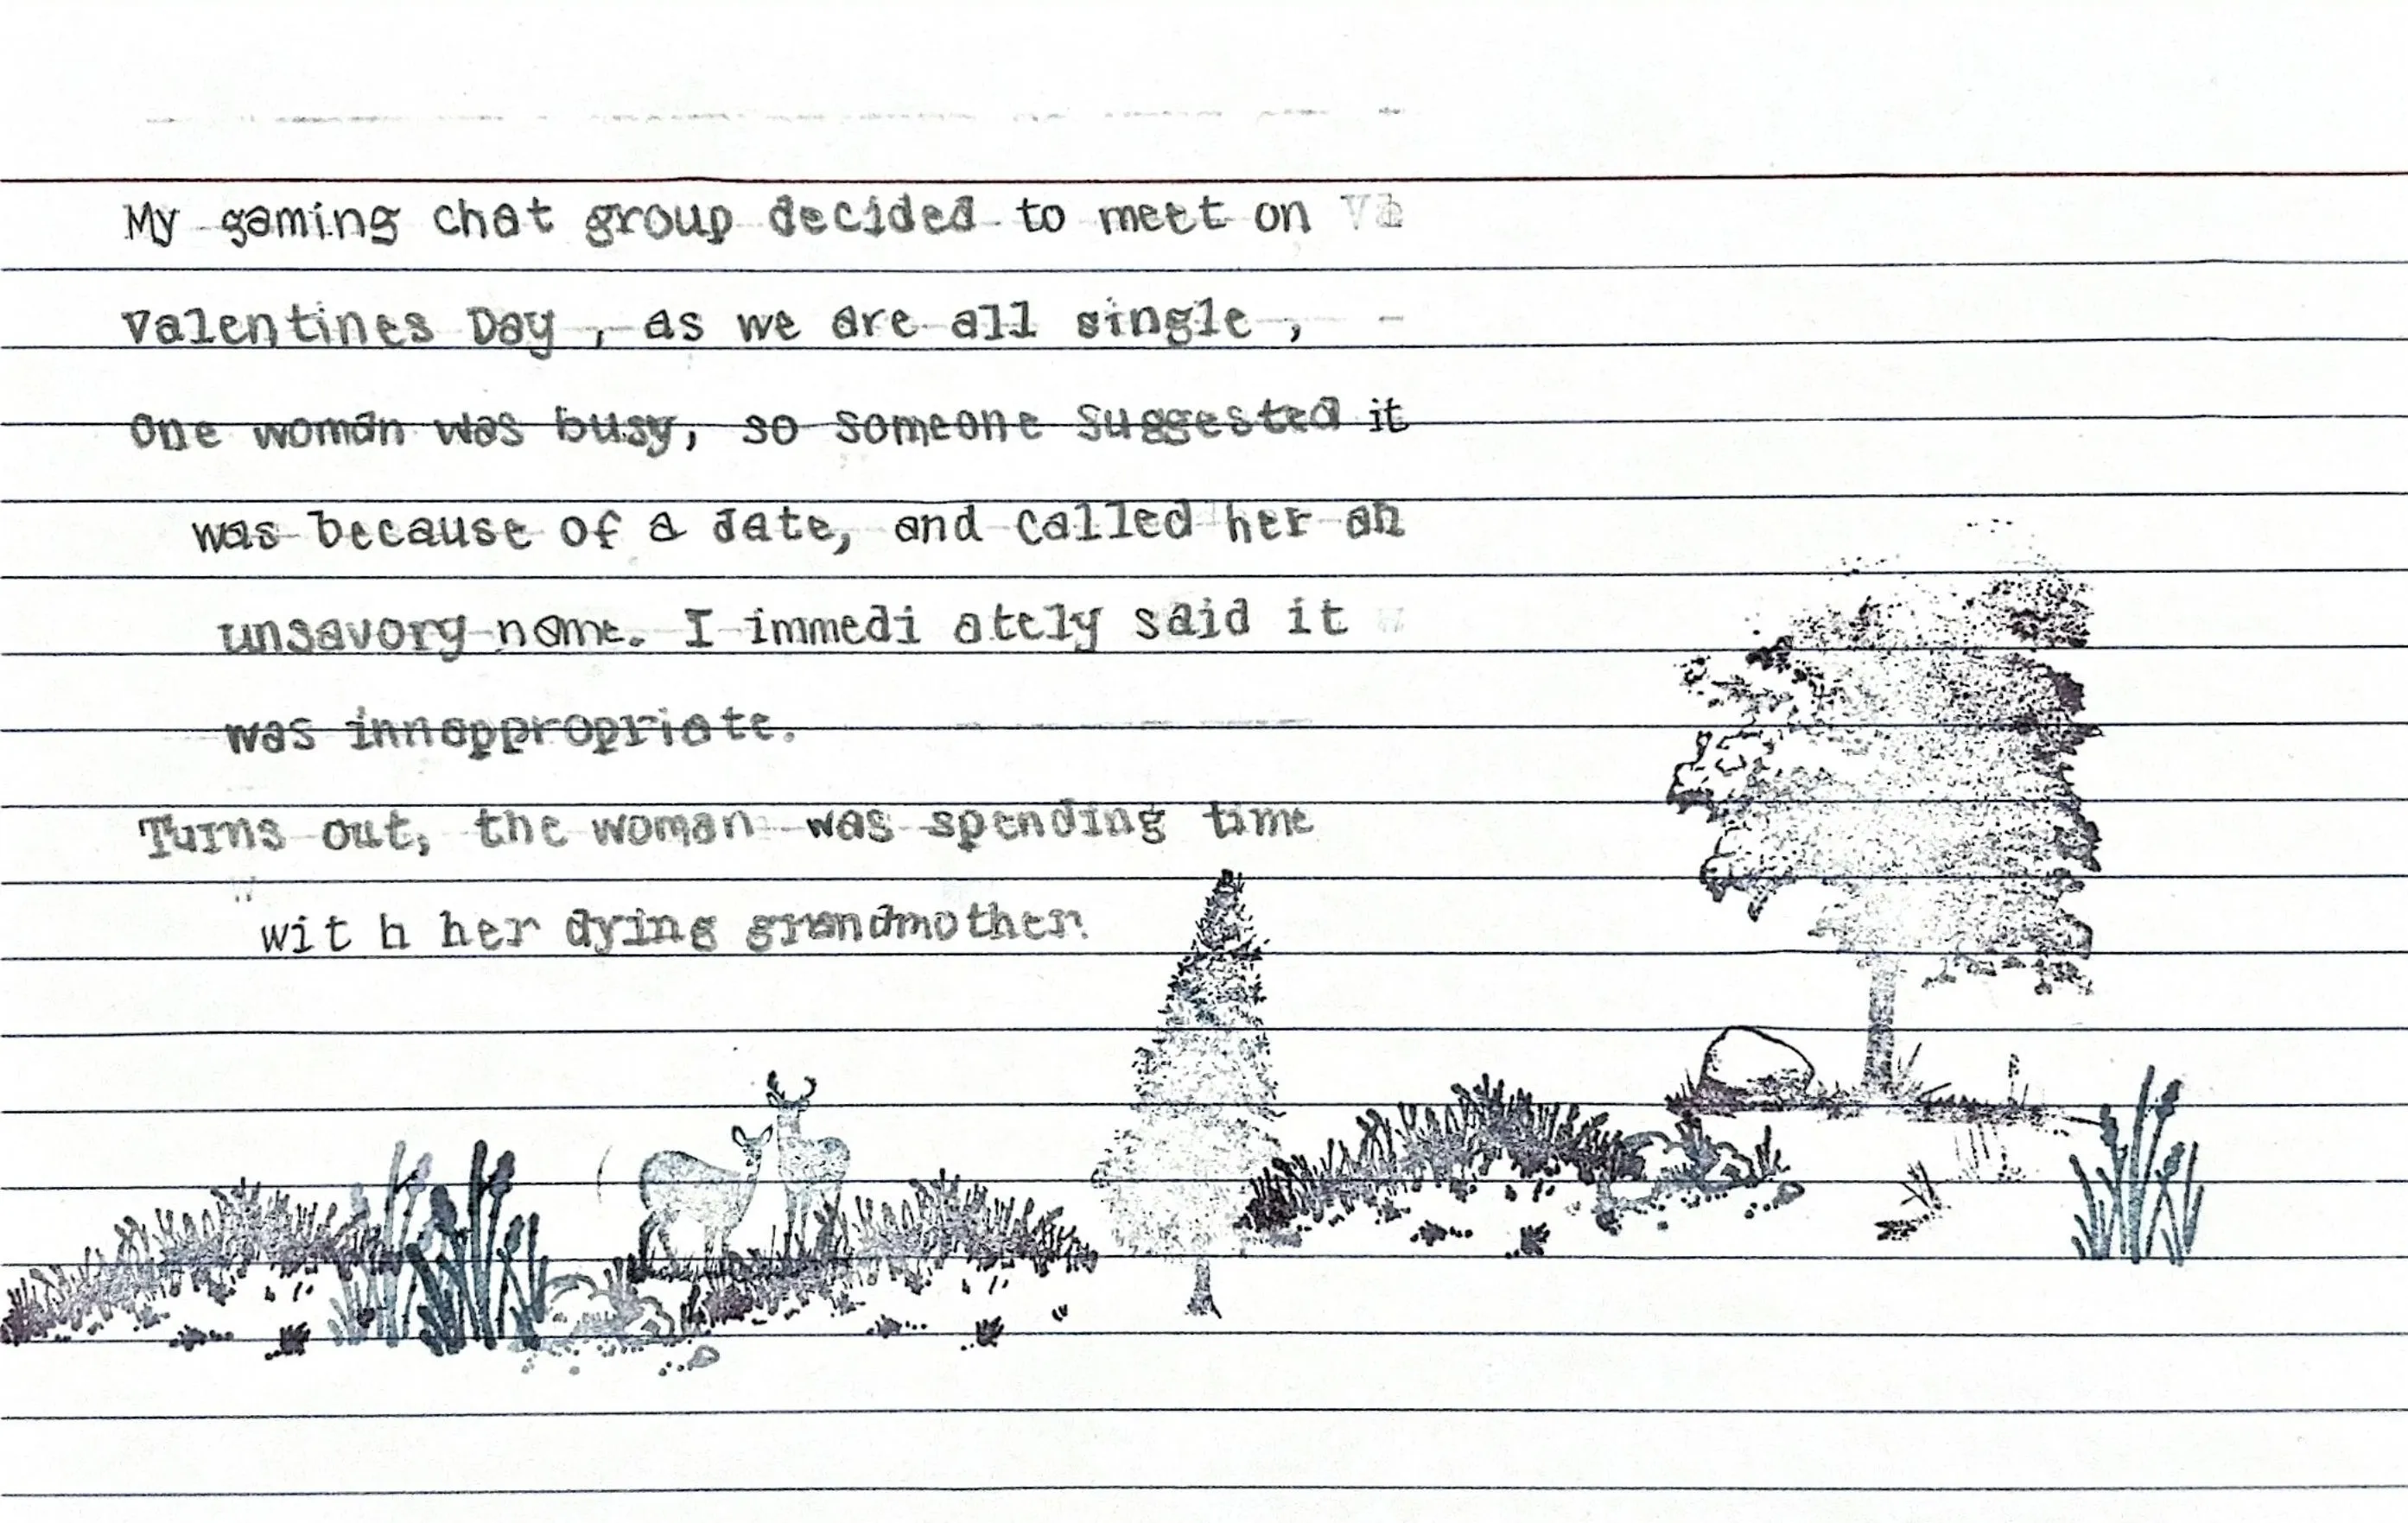 My gaming chat group decided to meet on Va
Valentines Day, as we are all single,
One woman was busy, so someone suggested it
was because of a date, and called her an
unsavory name. I immedi ately said it w
was innappropriate.
Turns out, the woman was spending time
w
wit h her dying grandmother.